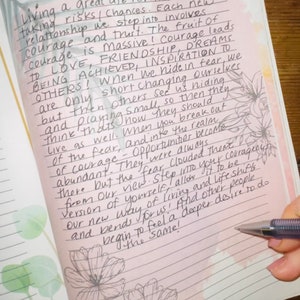 Living a great life
taking risks! Chances. Each new
relationship we step into involves
courage and trust. The fruit of
courage is Massive! Courage leads
to LOVE, FRIENDSHIP, DREAMS
BEING ACHIEVED, INSPIRATION TO
OTHERS! When we hide in fear, we
are only short changing ourselves
but the others see us hiding
and playing small, so then they
think that's how they should
live as well. When you break out
of the fear and into the realm
of courage, opportunities become
abundant. They were always
there but the fear clouded them
from our view. Step into your courageous
version of yourself, allow it to be
our new way of living and life shifts
and bends for us! And other people
begin to feel a deeper desire to do
the same!